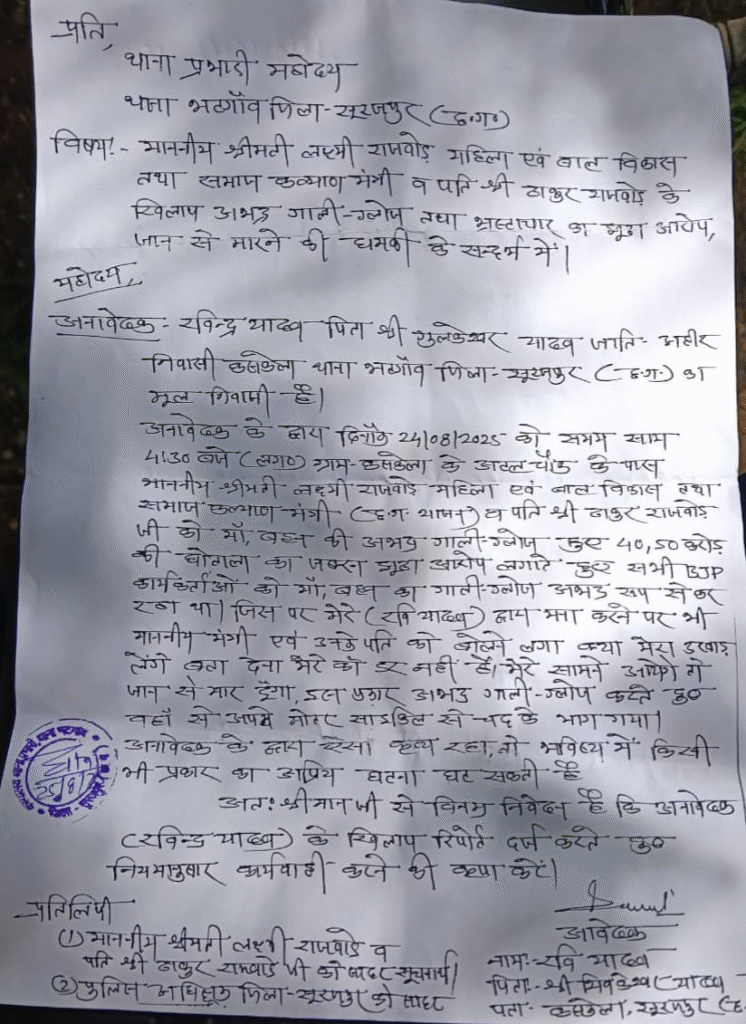 प्रति,
थाना प्रभारी महोदय
थाना भटगाँव जिला-सूरजपुर (छ.ग.)
विषय:- माननीय श्रीमती लक्ष्मी राजवाड़े महिला एवं बाल विकास
तथा समाज कल्याण मंत्री व पति श्री ठाकुर राजवाड़े के
खिलाप अभद्र गाली-ग्लोप तथा भ्रस्टाचार का झूठा आरोप,
जान से मारने की धमकी के सन्दर्भ में।
महोदय,
अनावेदक - रविन्द्र यादव पिता श्री यादव जाति- अहीर
निवासी कसकेला थाना भटगाँव जिला-सूरजपुर (छ.ग.) का
मूल निवासी है।
अनावेदक के द्वारा दिनाँक 24/08/2025 को समय साम
4:30 बजे (लग०) ग्राम-कसकेला के अटल चौक के पास
माननीय श्रीमती लक्ष्मी राजवाड़े महिला एवं बाल विकास तथा
समाज कल्याण मंत्री (छ.ग. शासन) व पति श्री ठाकुर राजवाड़े
जी को माँ, बहन की अभद्र गाली-ग्लोप हुए 40,50 करोड़
की घोटाला का झूठा आरोप लगाते हुए सभी BJP
कार्यकर्ताओं को माँ, बहन का गाली-ग्लोप अभद्र रूप से कर
रहा था। जिस पर मेरे (रवि यादव) द्वारा मना करने पर भी
माननीय मंत्री एवं उनके पति को बोलने लगा क्या मेरा उखाड़
लेंगे बता देना मेरे को डर नहीं है। मेरे सामने आयेंगे तो
जान से मार दूँगा, इस प्रकार अभद्र गाली-ग्लोप करते हुए
वहाँ से अपने मोटर साइकिल से चढ़ के भाग गया।
अनावेदक के द्वारा ऐसा रहा, तो भविष्य में किसी
भी प्रकार का अप्रिय घटना घट सकती है
अतः श्रीमान जी से विनम्र निवेदन है कि अनावेदक
(रविन्द्र यादव) के खिलाप रिपोर्ट दर्ज करते हुए
नियमानुसार कार्यवाही करने की कृपा करें।
प्रतिलिपी
(1) माननीय श्रीमती लक्ष्मी राजवाड़े व
पति श्री ठाकुर राजवाड़े जी को सादर सूचनार्थ।
(2) पुलिस अधिक्षक जिला-सूरजपुर को सादर
आवेदक
नाम:- रवि यादव
पिता:- श्री यादव
पता- कसकेला, सूरजपुर (छ.